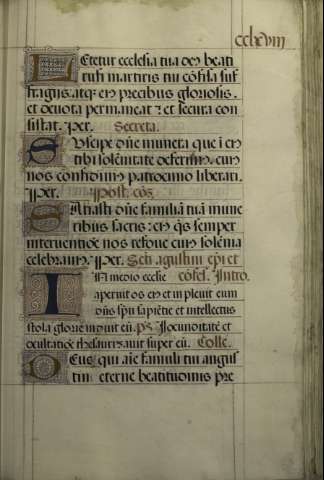 cclxviii
Letetur ecclesia tua deus beati
rufi martiris tui cōfisa suf
fragiis. atqꝫ eius precibus gloriosis.
et deuota permaneat ⁊ et secura con
sistat. per. Secreta.
Suscipe dn̄e munera que ī eiꝰ
tibi solēnitate deferim̄. cuiꝰ
nos confidimꝰ patrocinio liberari.
per. post cō3.
Satiasti dn̄e familiā tuā mune
ribus sacris: eiꝰ q̄s semper
interuentiōe nos refoue cuiꝰ solēnia
celebramꝰ. per. Scti agustini ep̄i et
In medio ecclie cōfes. Intro.
aperuit os eiꝰ et impleuit eum
dn̄s sp̄u sapiētie et intellectus
stola glorie induit eū. ps. Jocunditatē et
exultatiōē thesaurizauit super eū. Colle.
Deus qui aīe famuli tui augus
tini eterne beatitudinis pre